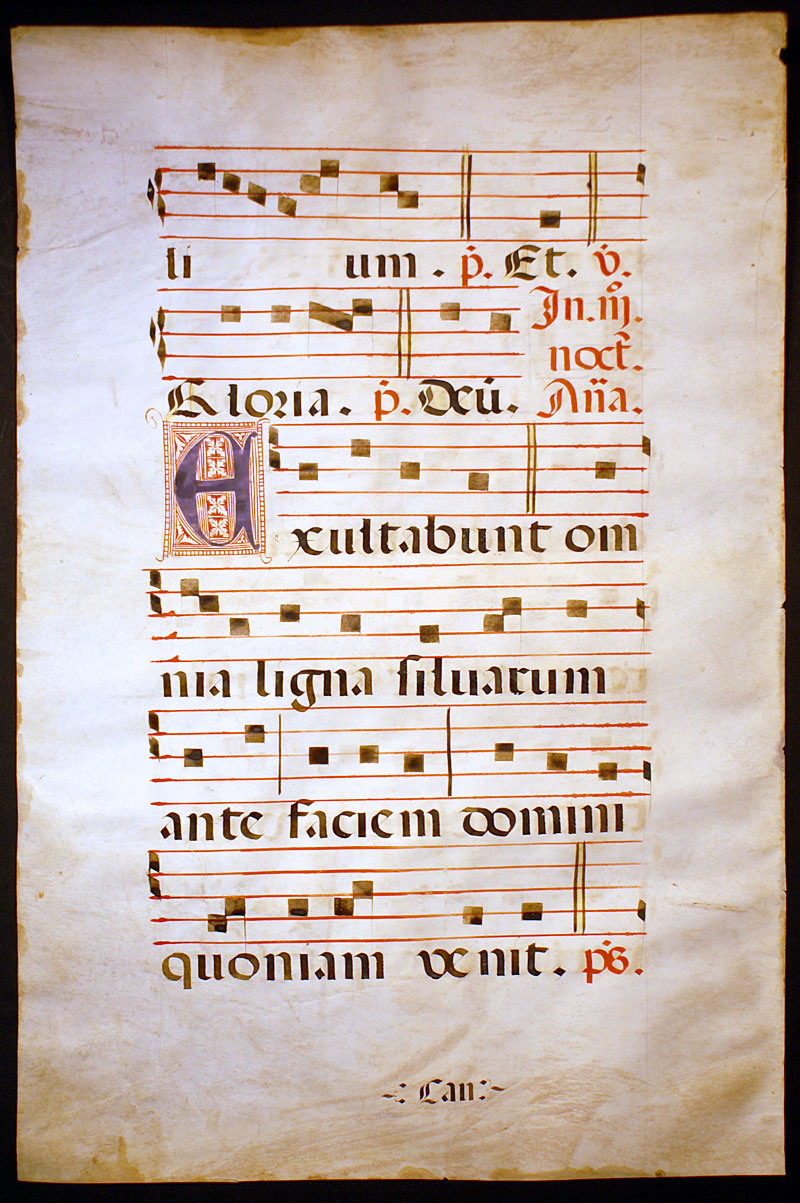 li um . p̄. Et. v̄.
In. iij.
noct.
Gloria. p̄. Deū. Aña.
Exultabunt om
nia ligna siluarum
ante faciem domini
quoniam venit. ps.
Can